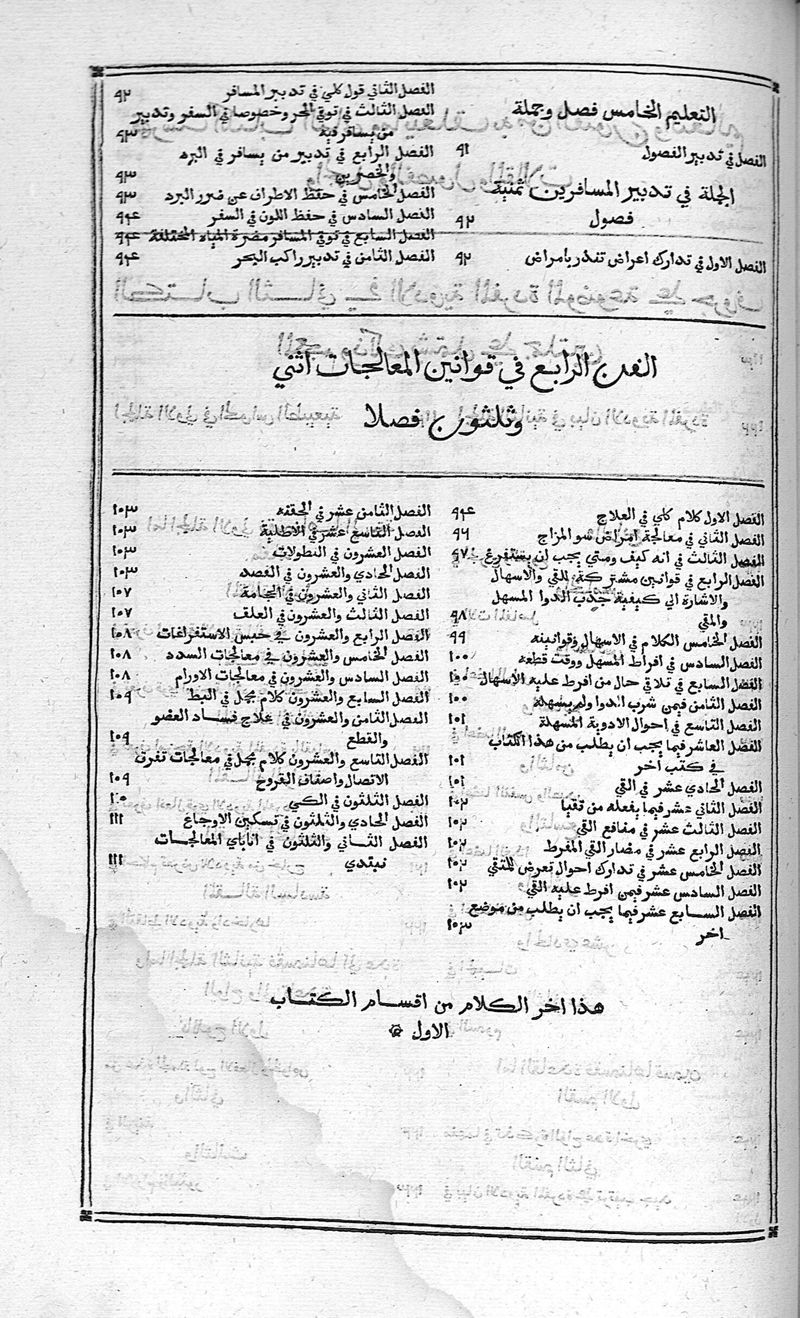 التعليم الخامس فصل وجملة
الفصل في تدبير الفصول ٩١
الجملة في تدبير المسافرين ثمنية
فصول ٩٢
الفصل الاول في تدارك اعراض تنذر بامراض ٩٢
الفصل الثاني قول كلي في تدبير المسافر ٩٢
الفصل الثالث في توقي الحر وخصوصا في السفر وتدبير
من يسافر فيه ٩٣
الفصل الرابع في تدبير من يسافر في البرد
٩٣
الفصل الخامس في حفظ الاطراف عن ضرر البرد ٩٣
الفصل السادس في حفظ اللون في السفر ٩٤
الفصل السابع في توقي المسافر مضرة المياه المختلفة ٩٤
الفصل الثامن في تدبير راكب البحر ٩٤
الفن الرابع في قوانين المعالجات اثني
وثلثون فصلا
الفصل الاول كلام كلي في العلاج ٩٤
الفصل الثاني في معالجة امراض سو المزاج ٩٦
الفصل الثالث في انه كيف ومتي يجب ان يستفرغ ٩٧
الفصل الرابع في قوانين مشتركة للقي والاسهال
والاشارة الي كيفية جذب الدوا المسهل
والمقي ٩٨
الفصل الخامس الكلام في الاسهال وقوانينه ٩٩
الفصل السادس في افراط المسهل ووقت قطعه ١٠٠
الفصل السابع في تلافي حال من افرط عليه الاسهال
الفصل الثامن فيمن شرب الدوا ولم يسهله ١٠٠
الفصل التاسع في احوال الادوية المسهلة ١٠١
الفصل العاشر فيما يجب ان يطلب من هذا الكتاب
في كتب اخر ١٠١
الفصل الحادي عشر في القي ١٠١
الفصل الثاني عشر فيما يفعله من تقيا ١٠٢
الفصل الثالث عشر في منافع القي ١٠٢
الفصل الرابع عشر في مضار القي المفرط ١٠٢
الفصل الخامس عشر في تدارك احوال تعرض للمتقي ١٠٢
الفصل السادس عشر فيمن افرط عليه القي ١٠٢
الفصل السابع عشر فيما يجب ان يطلب من موضع
اخر ١٠٣
الفصل الثامن عشر في الحقنه ١٠٣
الفصل التاسع عشر في الاطلية ١٠٣
الفصل العشرون في النطولات ١٠٣
الفصل الحادي والعشرون في الفصد ١٠٣
الفصل الثاني والعشرون في الحجامة ١٠٧
الفصل الثالث والعشرون في العلق ١٠٧
الفصل الرابع والعشرون في حبس الاستفراغات ١٠٨
الفصل الخامس والعشرون في معالجات السدد ١٠٨
الفصل السادس والعشرون في معالجات الاورام ١٠٨
الفصل السابع والعشرون كلام مجمل في البط ١٠٩
الفصل الثامن والعشرون في علاج فساد العضو
والقطع ١٠٩
الفصل التاسع والعشرون كلام مجمل في معالجات تفرق
الاتصال واصناف القروح ١٠٩
الفصل الثلثون في الكي
الفصل الحادي والثلثون في تسكين الاوجاع ١١١
الفصل الثاني والثلثون في ان باي المعالجات
نبتدي ١١١
هذا اخر الكلام من اقسام الكتاب
الاول